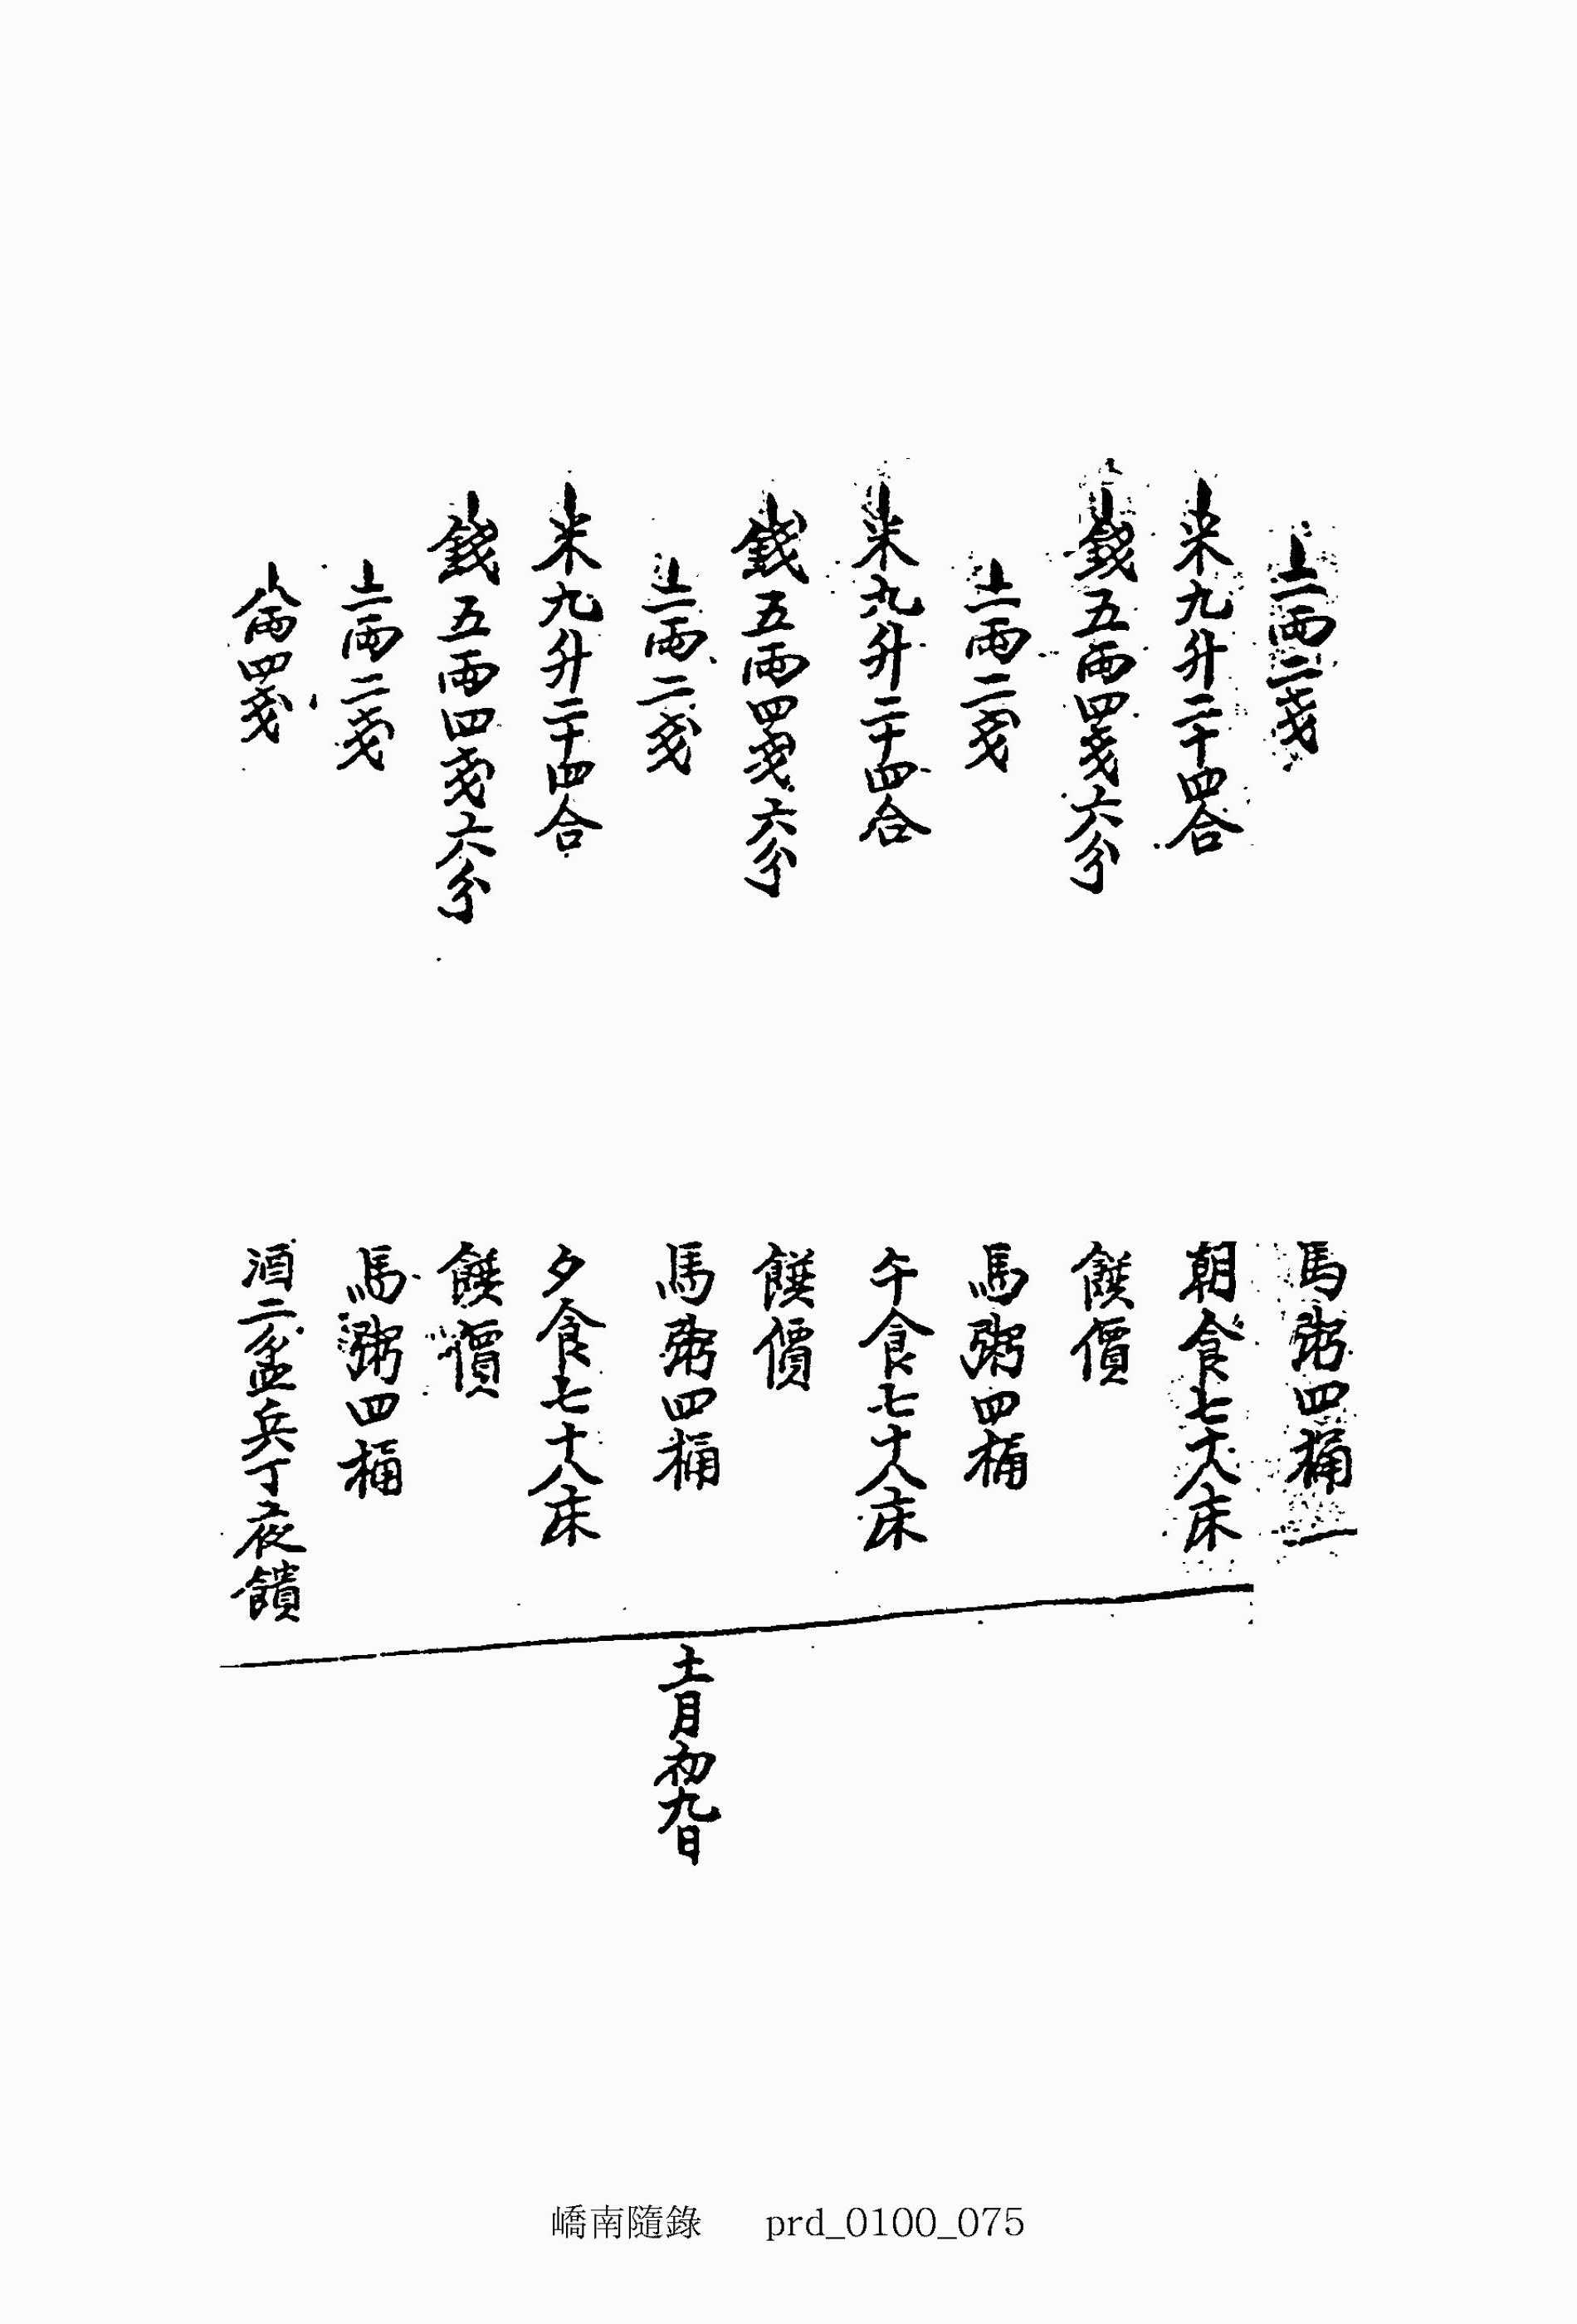 一兩二戔　馬粥四桶
米九升二十四合　朝食七十八床
錢五兩四戔六分　饌價
一兩二戔　馬粥四桶
米九升二十四合　午食七十八床
錢五兩四戔六分　饌價
一兩二戔　馬粥四桶
十一月初九日
米九升二十四合　夕食七十八床
錢五兩四戔六分　饌價
一兩二戔　馬粥四桶
八兩四戔　酒二盆兵丁夜饋
嶠南隨錄　prd_0100_075